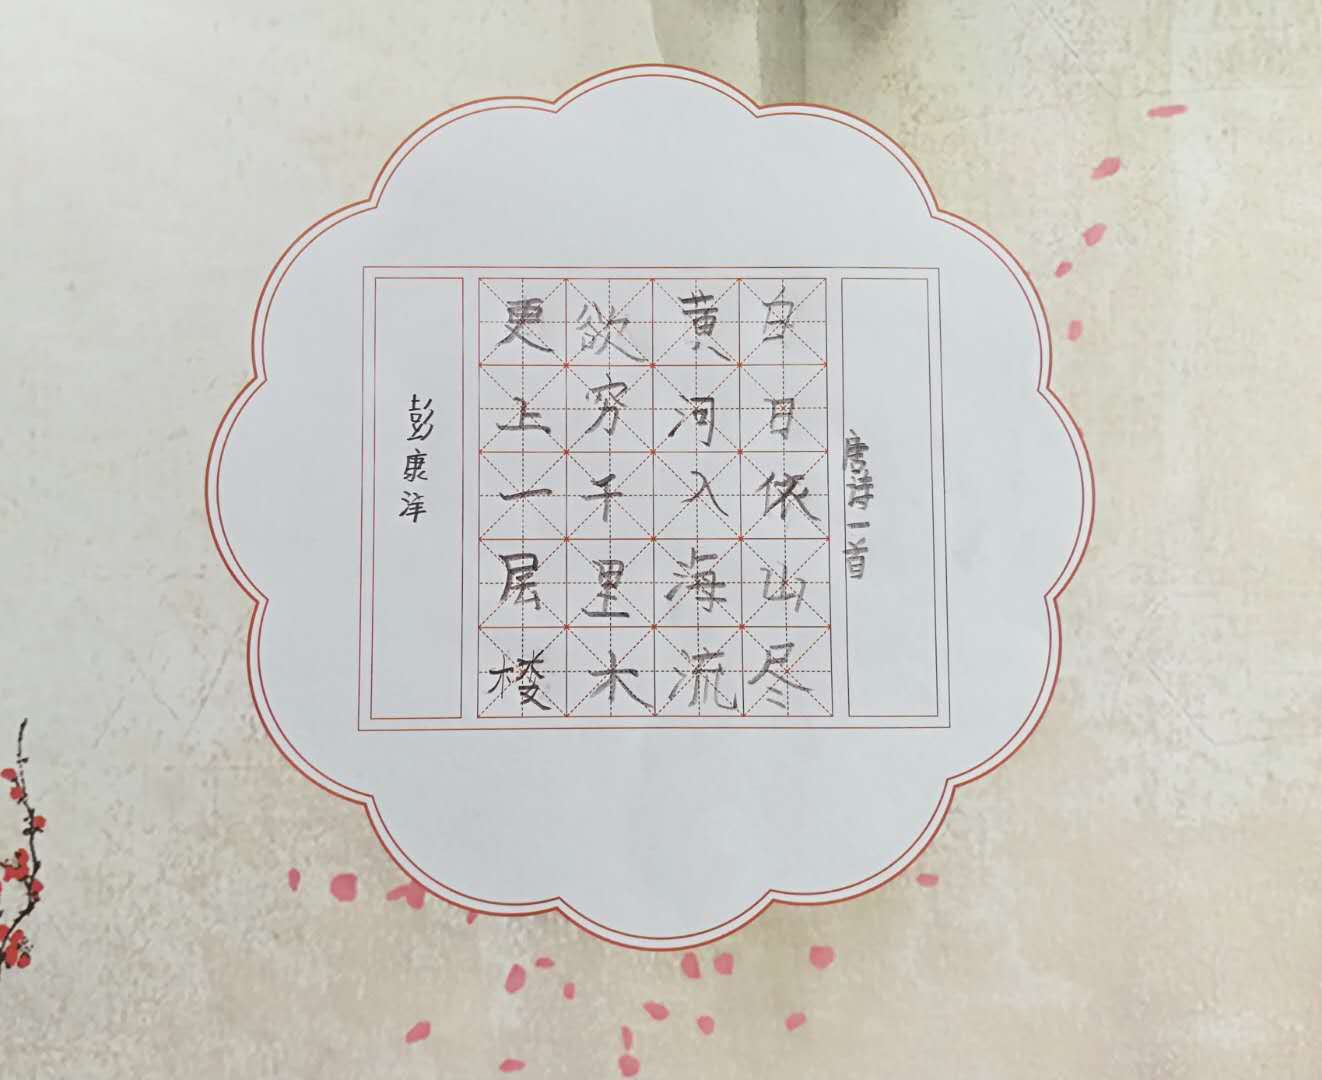 唐诗一首
白日依山尽
黄河入海流
欲穷千里木
更上一层楼
彭康洋